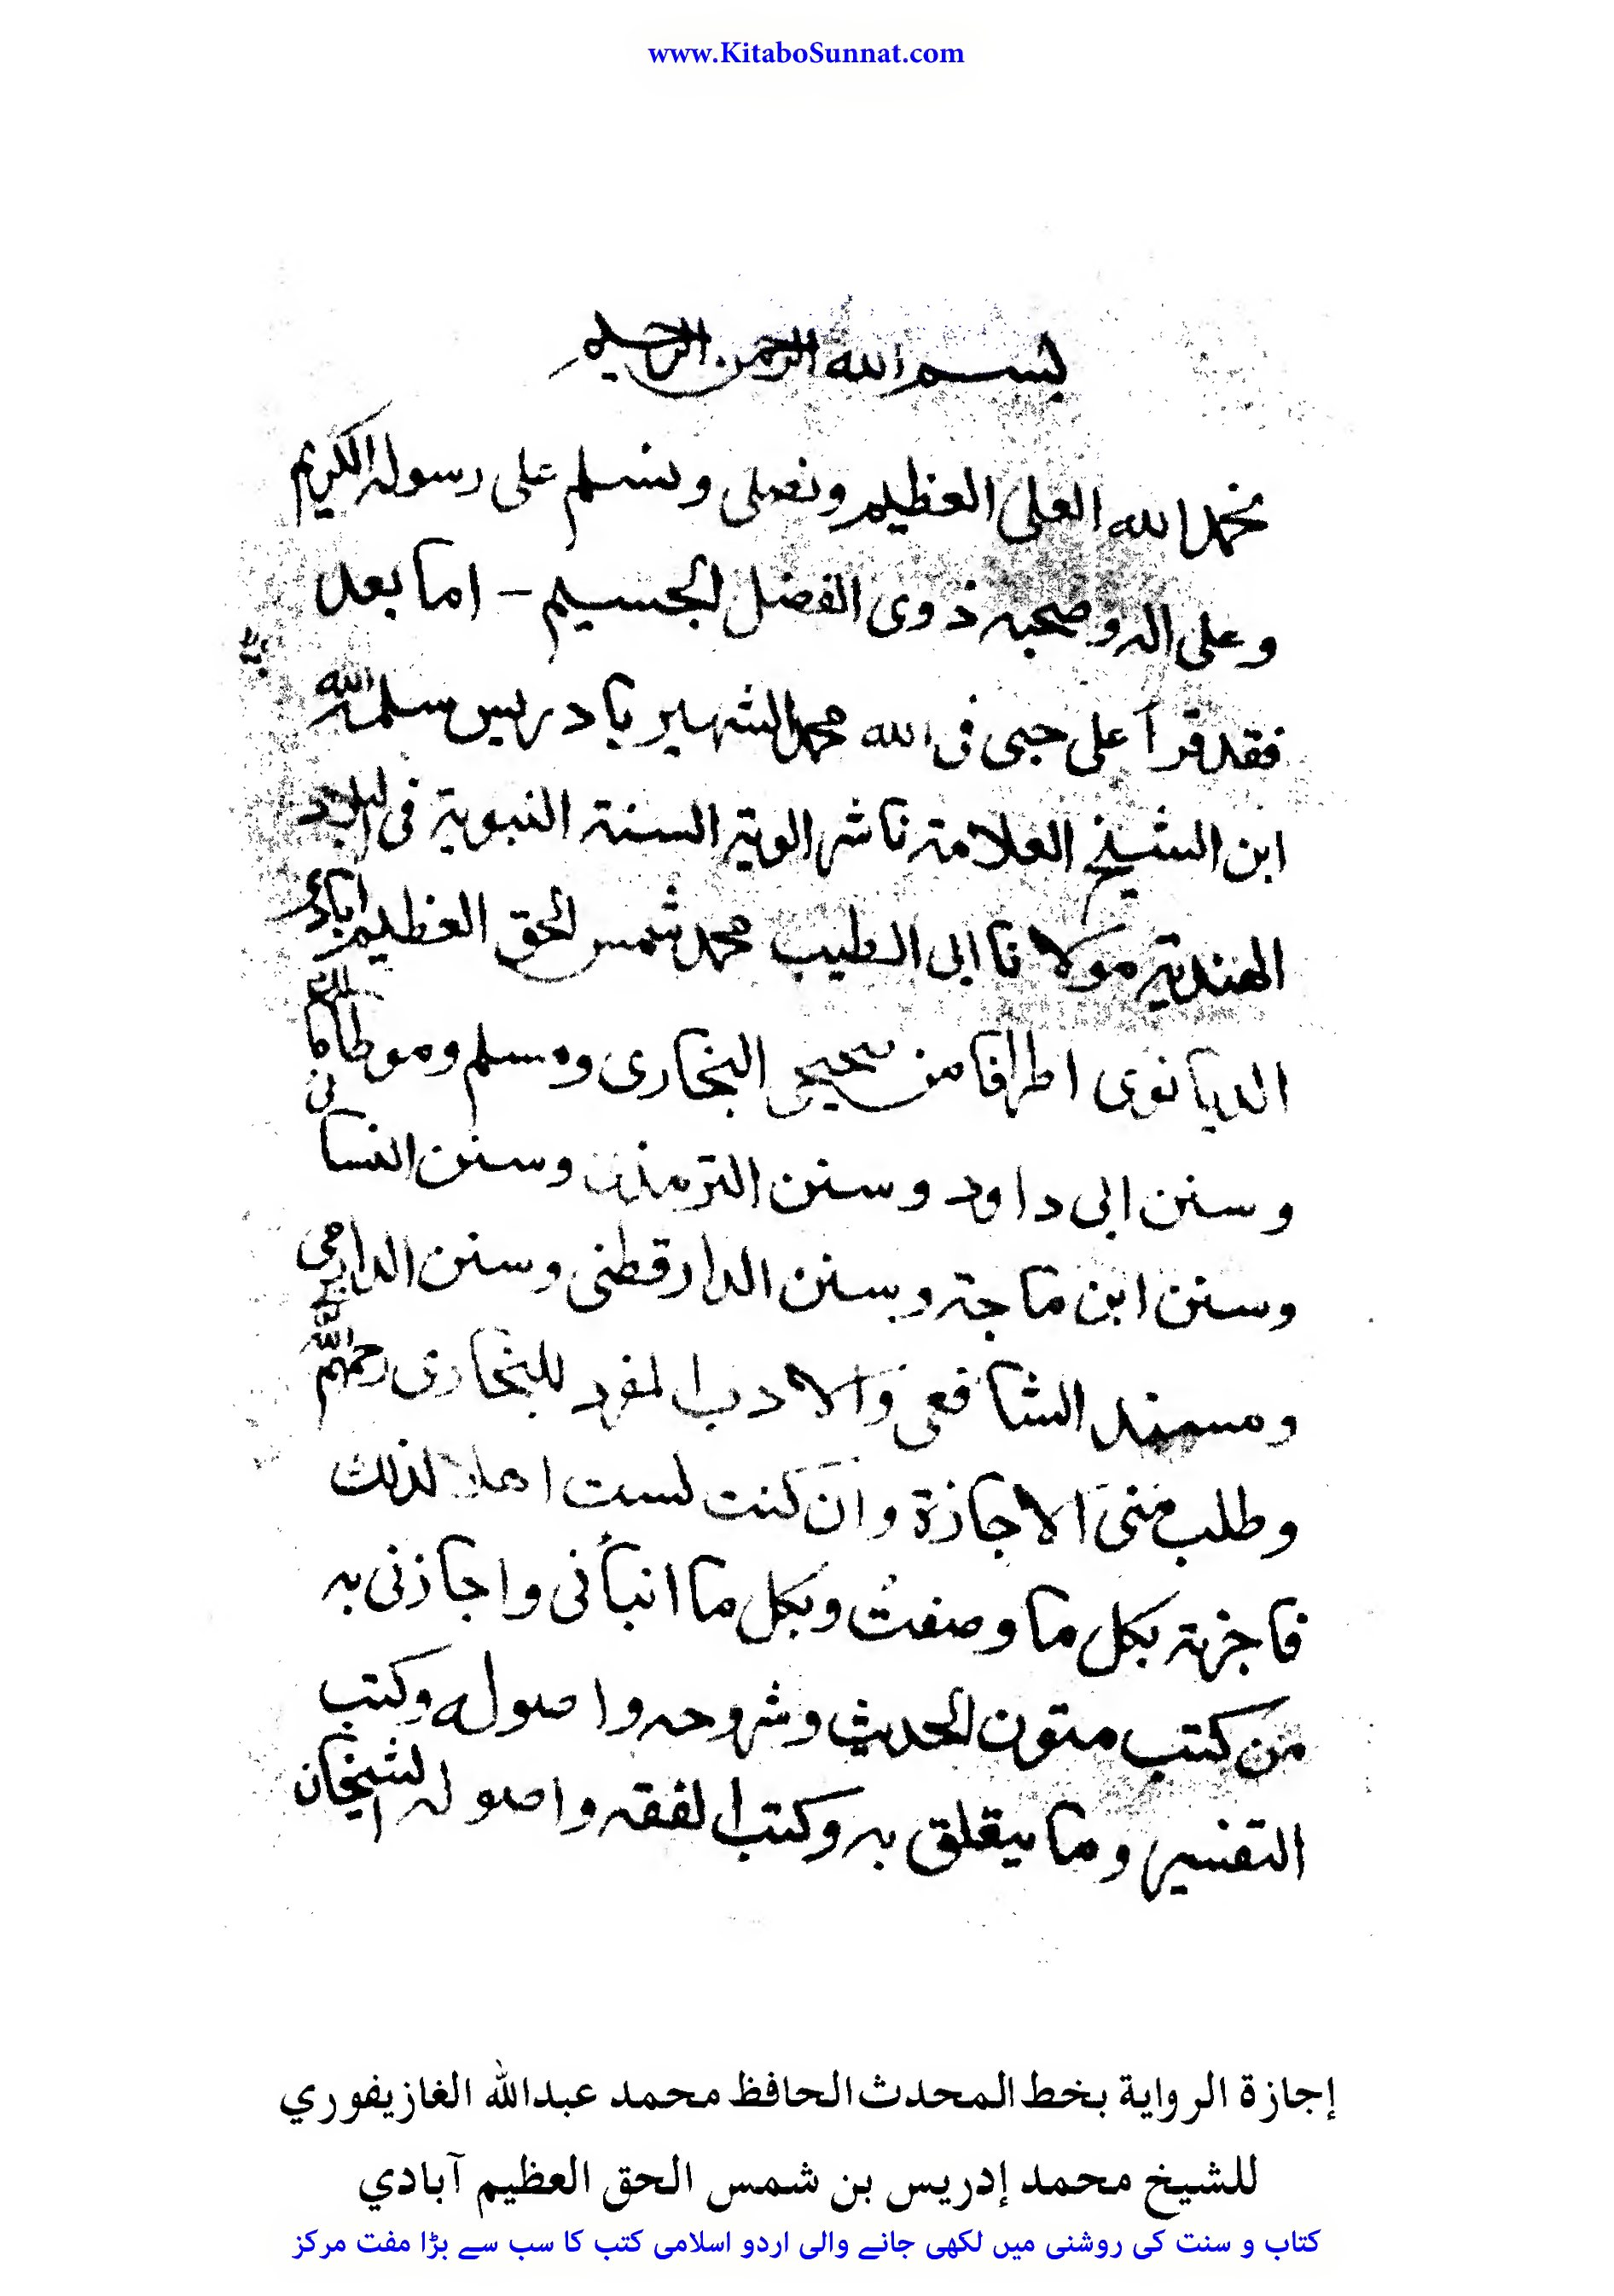 www.KitaboSunnat.com
بسم الله الرحمن الرحيم
نحمد الله العلی العظیم ونصلی ونسلم علی رسوله الکریم
وعلی اله وصحبه ذوی الفضل الجسیم - اما بعد
فقد قرأ علی حبی فی الله محمد الشهیر بادریس سلمه الله
ابن الشیخ العلامة ناشر الویة السنة النبویة فی البلاد
الهندیة مولانا ابی الطیب محمد شمس الحق العظیم آبادی
الدیانوی اطرافا من صحیحی البخاری ومسلم وموطا مالك
وسنن ابی داود وسنن الترمذی وسنن النسائی
وسنن ابن ماجة وسنن الدارقطنی وسنن الدارمی
ومسند الشافعی والادب المفرد للبخاری رحمهم الله
وطلب منی الاجازة وان کنت لست اهلا لذلك
فاجزته بکل ما وصفتُ وبکل ما انبأنی واجازنی به
من کتب متون الحدیث وشروحه واصوله وکتب
التفسیر وما یتعلق به وکتب الفقه واصوله الشیخان
إجازة الرواية بخط المحدث الحافظ محمد عبدالله الغازيفوري
للشيخ محمد إدريس بن شمس الحق العظيم آبادي
کتاب و سنت کی روشنی میں لکھی جانے والی اردو اسلامی کتب کا سب سے بڑا مفت مرکز